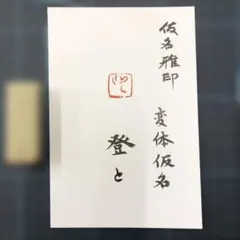 仮名雅印
変体仮名
登と